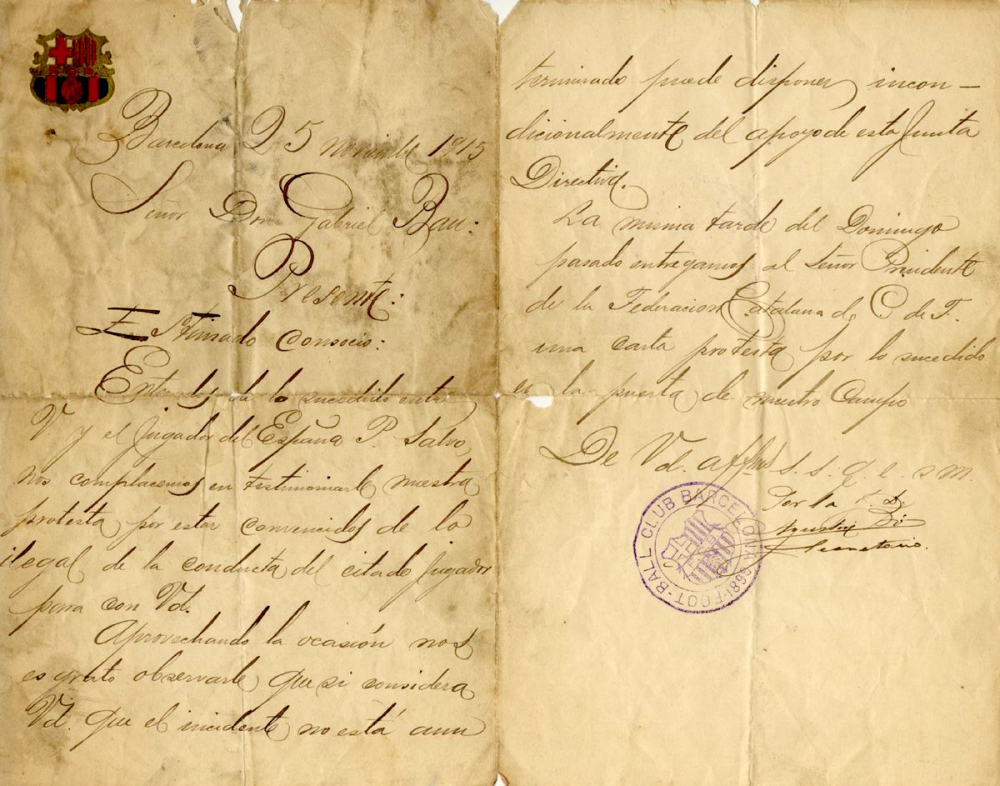 Barcelona 25 noviembre 1915
Señor Don Gabriel Bau:
Presente:
Estimado Consocio:
Enterados de lo sucedido entre
V y el jugador del España P. Salvo,
nos complacemos en testimoniarle nuestra
protesta por estar convencidos de lo
ilegal de la conducta del citado jugador
para con Vd.
Aprovechando la ocasión nos
es grato observarle, que si considera
Vd. que el incidente no está aun
terminado puede disponer, incon-
dicionalmente del apoyo de esta Junta
Directiva.
La misma tarde del Domingo
pasado entregamos al Señor Presidente
de la Federacion Catalana de C de F.
una carta protesta por lo sucedido
en la puerta de nuestro Campo
De Vd. affmos s. s. q. e. s m.
Por la J. D.
Secretario.
FOOT-BALL CLUB BARCELONA 1899